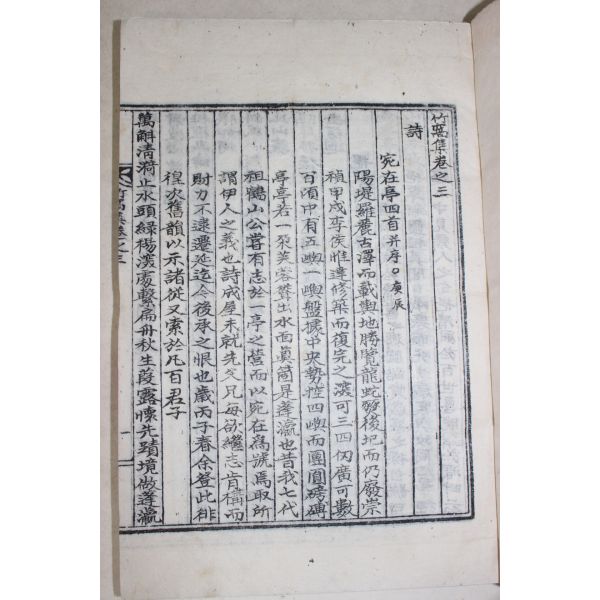 竹窩集卷之三
詩
宛在亭四首并序○庚辰
陽堤羅麓古澤而載輿地勝覽龍蛇發後圮而仍廢崇
禎甲戌李侯惟達修築而復完之深可三四仞廣可數
百頃中有五嶼一嶼盤據中央勢控四嶼而團圓磅礴
亭亭若一朶芙蓉聳出水面眞箇是蓬瀛也昔我七代
祖鶴山公嘗有志於一亭之營而以宛在爲號焉取所
謂伊人之義也詩成屋未就先父兄每欲繼志肯構而
財力不逮遷延迄今後承之恨也歲丙子春余登此徘
徨次舊韻以示諸從又索於凡百君子
萬斛淸漪止水頭綠楊深處繫扁舟秋生葭露懷先蹟境倣蓬瀛
竹窩集卷之三
一